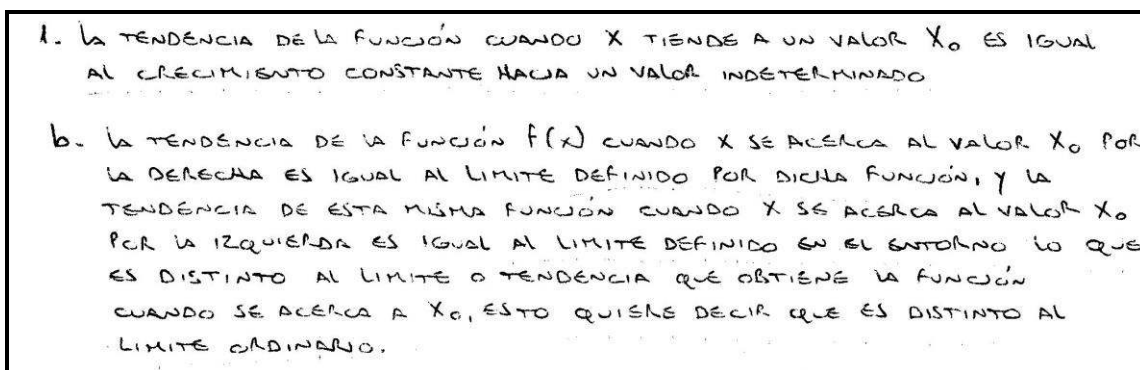 1. LA TENDENCIA DE LA FUNCIÓN CUANDO X TIENDE A UN VALOR X₀ ES IGUAL
AL CRECIMIENTO CONSTANTE HACIA UN VALOR INDETERMINADO
b. LA TENDENCIA DE LA FUNCIÓN f(x) CUANDO X SE ACERCA AL VALOR X₀ POR
LA DERECHA ES IGUAL AL LIMITE DEFINIDO POR DICHA FUNCIÓN, Y LA
TENDENCIA DE ESTA MISMA FUNCIÓN CUANDO X SE ACERCA AL VALOR X₀
POR LA IZQUIERDA ES IGUAL AL LIMITE DEFINIDO EN EL ENTORNO LO QUE
ES DISTINTO AL LIMITE O TENDENCIA QUE OBTIENE LA FUNCIÓN
CUANDO SE ACERCA A X₀, ESTO QUIERE DECIR QUE ES DISTINTO AL
LIMITE ORDINARIO.